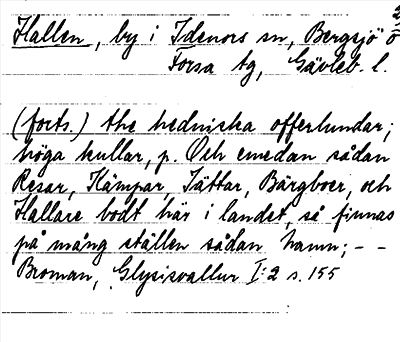 2
Hallen, by i Idenors sn, Bergsjö o
Forsa tg, Gävleb. l.
(forts.) the hedniska offerlundar;
höga kullar, p. Och emedan sådan
Resar, Kämpar, Jättar, Bärgboer, och
Hallare bodt här i landet, så finnas
på mång ställen sådan namn; - -
Broman, Glysisvallur I:2 s. 155